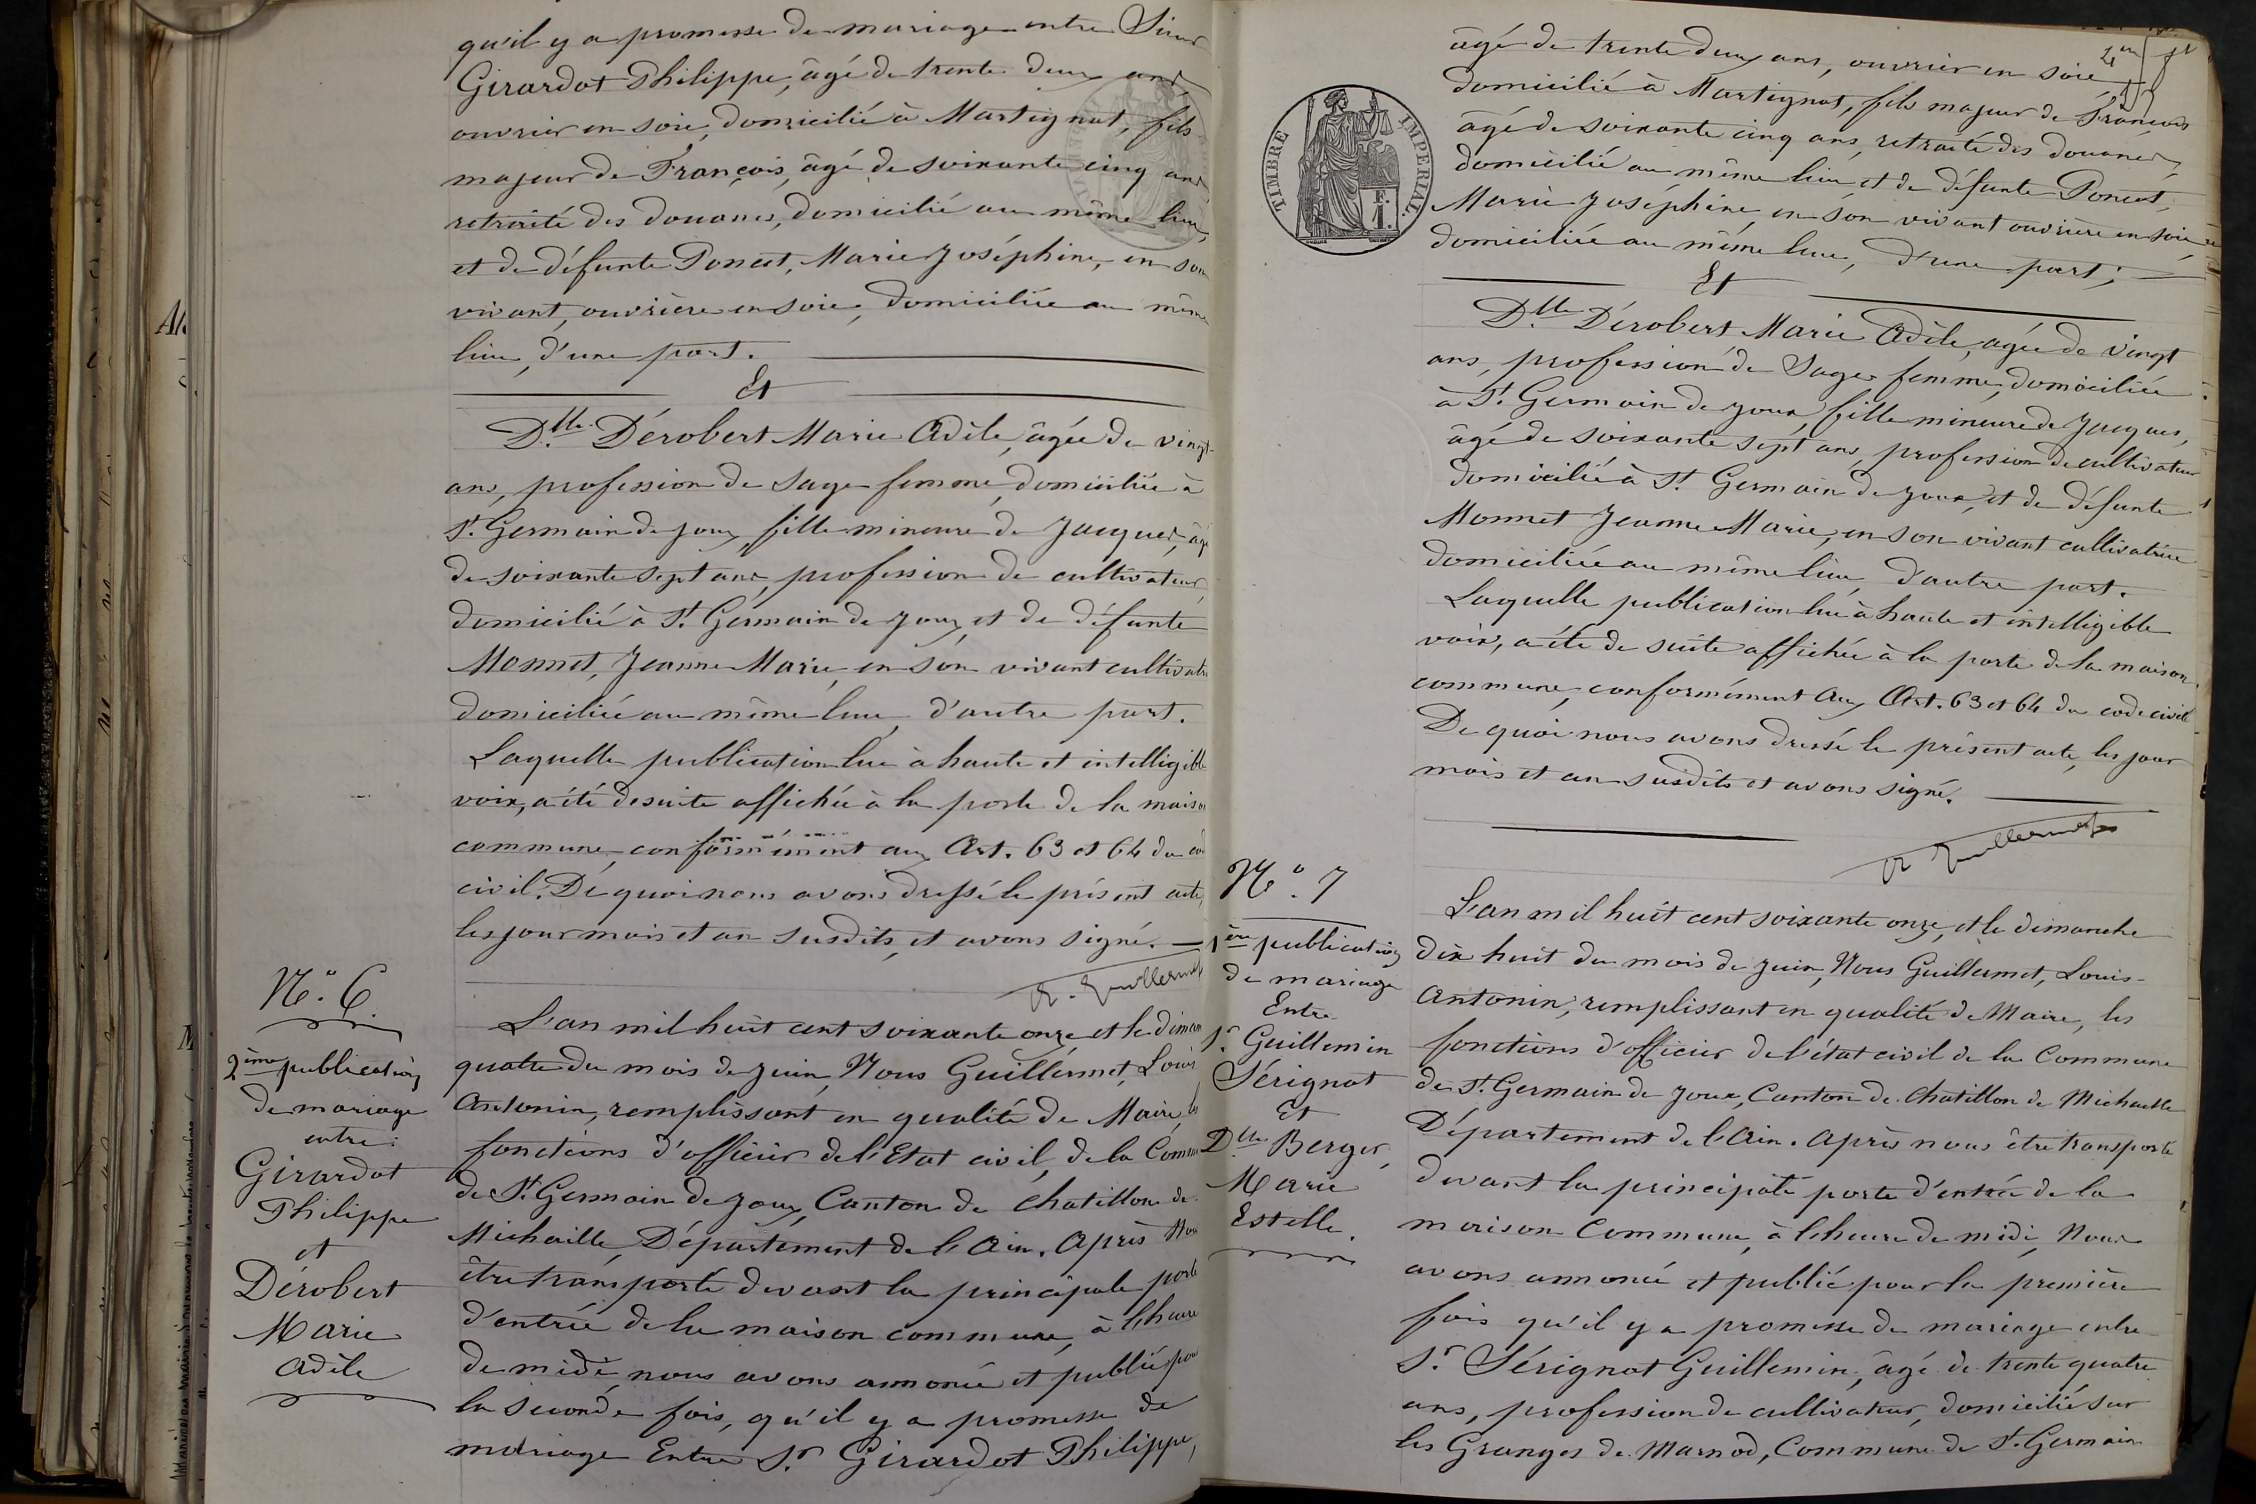 qu'il y a promesse de mariage entre Sieur
Girardot Philippe, âgé de trente deux ans,
ouvrier en soie, domicilié à Martignat, fils
majeur de François, âgé de soixante cinq ans,
retraité des douanes, domicilié au même lieu,
et de défunte Poncet, Marie Joséphine, en son
vivant, ouvrière en soie, domiciliée au même
lieu, d'une part.
Et
Dlle Dérobert Marie Adèle, âgée de vingt
ans, profession de sage femme, domiciliée à
St. Germain de Joux, fille mineure de Jacques, âgé
de soixante sept ans, profession de cultivateur,
domicilié à St. Germain de Joux, et de défunte
Monnet, Jeanne Marie, en son vivant cultivatri
domiciliée au même lieu, d'autre part.
Laquelle publication lue à haute et intelligible
voix, a été de suite affichée à la porte de la maison
commune, conformément aux Art. 63 et 64 du cod
civil. De quoi nous avons dressé le présent acte,
les jour mois et an susdits, et avons signé.
A. Guillermet
No. 6.
2ème publication
de mariage
entre
Girardot
Philippe
et
Dérobert
Marie
Adèle
L'an mil huit cent soixante onze et le diman
quatre du mois de juin, Nous Guillermet, Louis
Antonin, remplissant en qualité de Maire, les
fonctions d'officier de l'Etat civil, de la Commu
de St. Germain de Joux, Canton de Chatillon de
Michaille, Département de l'Ain. Après Nous
être transporté devant la principale porte
d'entrée de la maison commune, à l'heure
de midi, nous avons annoncé et publié pour
la seconde fois, qu'il y a promesse de
mariage Entre Sr Girardot Philippe,
âgé de trente deux ans, ouvrier en soie
domicilié à Martignat, fils majeur de François
âgé de soixante cinq ans, retraité des douanes,
domicilié au même lieu, et de défunte Poncet,
Marie Joséphine, en son vivant ouvrière en soie,
domiciliée au même lieu, d'une part;
TIMBRE IMPERIAL.
F.
1.
Et
Dlle Dérobert Marie Adèle, âgée de vingt
ans, profession de Sage femme, domiciliée
à St. Germain de Joux, fille mineure de Jacques,
âgé de soixante sept ans, profession de cultivateur
domicilié à St. Germain de Joux, et de défunte
Monnet Jeanne Marie, en son vivant cultivatrice
domiciliée au même lieu, d'autre part.
Laquelle publication lue à haute et intelligible
voix, a été de suite affichée à la porte de la maison
commune, conformément aux Art. 63 et 64 du code civil
De quoi nous avons dressé le présent acte, les jour
mois et an susdits et avons signé.
A Guillermet
No. 7
1ère publication
de mariage
Entre
Sr. Guillemin
Sérignat
Et
Dlle Berger,
Marie
Estelle.
L'an mil huit cent soixante onze, et le dimanche
dix huit du mois de juin, Nous Guillermet, Louis-
Antonin, remplissant en qualité de Maire, les
fonctions d'officier de l'état civil de la Commune
de St. Germain de Joux, Canton de Chatillon de Michaille
Département de l'Ain. Après nous être transporté
devant la principale porte d'entrée de la
maison Commune, à l'heure de midi, Nous
avons annoncé et publié pour la première
fois qu'il y a promesse de mariage entre
Sr. Sérignat Guillemin, âgé de trente quatre
ans, profession de cultivateur, domicilié sur
les Granges de Marnod, Commune de St. Germain